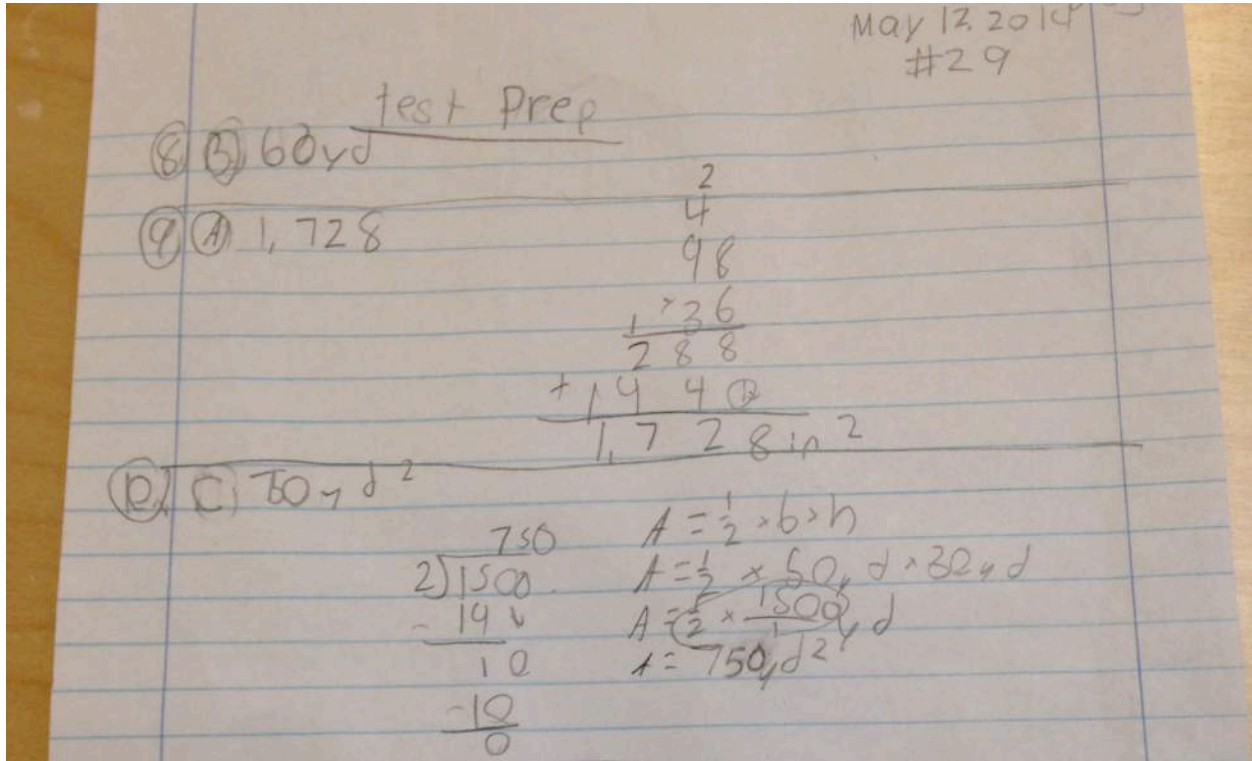 May 12. 2014
#29
test Prep
8 B 60yd
9 A 1,728
2
4
98
× 36
1
2 8 8
+ 1 4 4 0
1,7 2 8 in 2
C yd 2
750
2)1500
- 14
10
- 10
0
A = 1/2 × b × h
A = 1/2 × 50yd × 30yd
A = 1/2 × 1500/1 yd
A = 750yd2